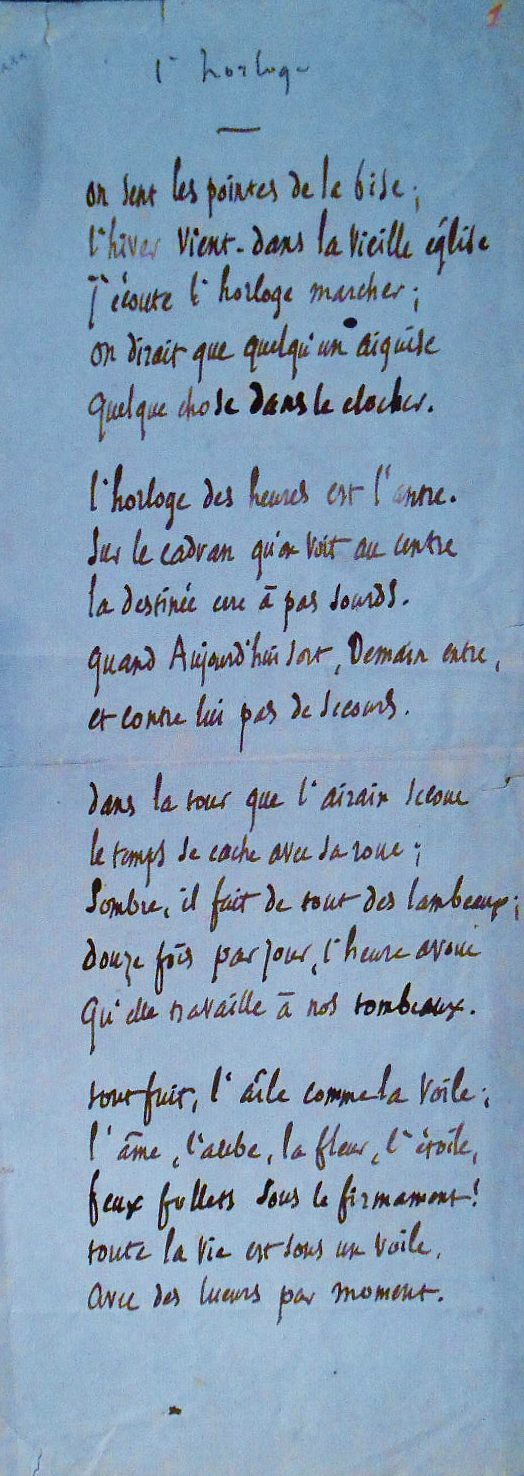 1
l'horloge
on sent les pointes de la bise ;
l'hiver vient. dans la vieille église
J'écoute l'horloge marcher ;
on dirait que quelqu'un aiguise
quelque chose dans le clocher.
l'horloge des heures est l'antre.
Sur le cadran qu'on voit au centre
la destinée erre à pas sourds.
quand Aujourd'hui sort, Demain entre,
et contre lui pas de secours.
dans la tour que l'airain secoue
le temps se cache avec sa roue ;
Sombre, il fait de tout des lambeaux ;
douze fois par jour, l'heure avoue
Qu'elle travaille à nos tombeaux.
tout fuit, l'aîle comme la voile ;
l'âme, l'aube, la fleur, l'étoile,
feux follets sous le firmament !
toute la vie est sous un voile,
avec des lueurs par moment.